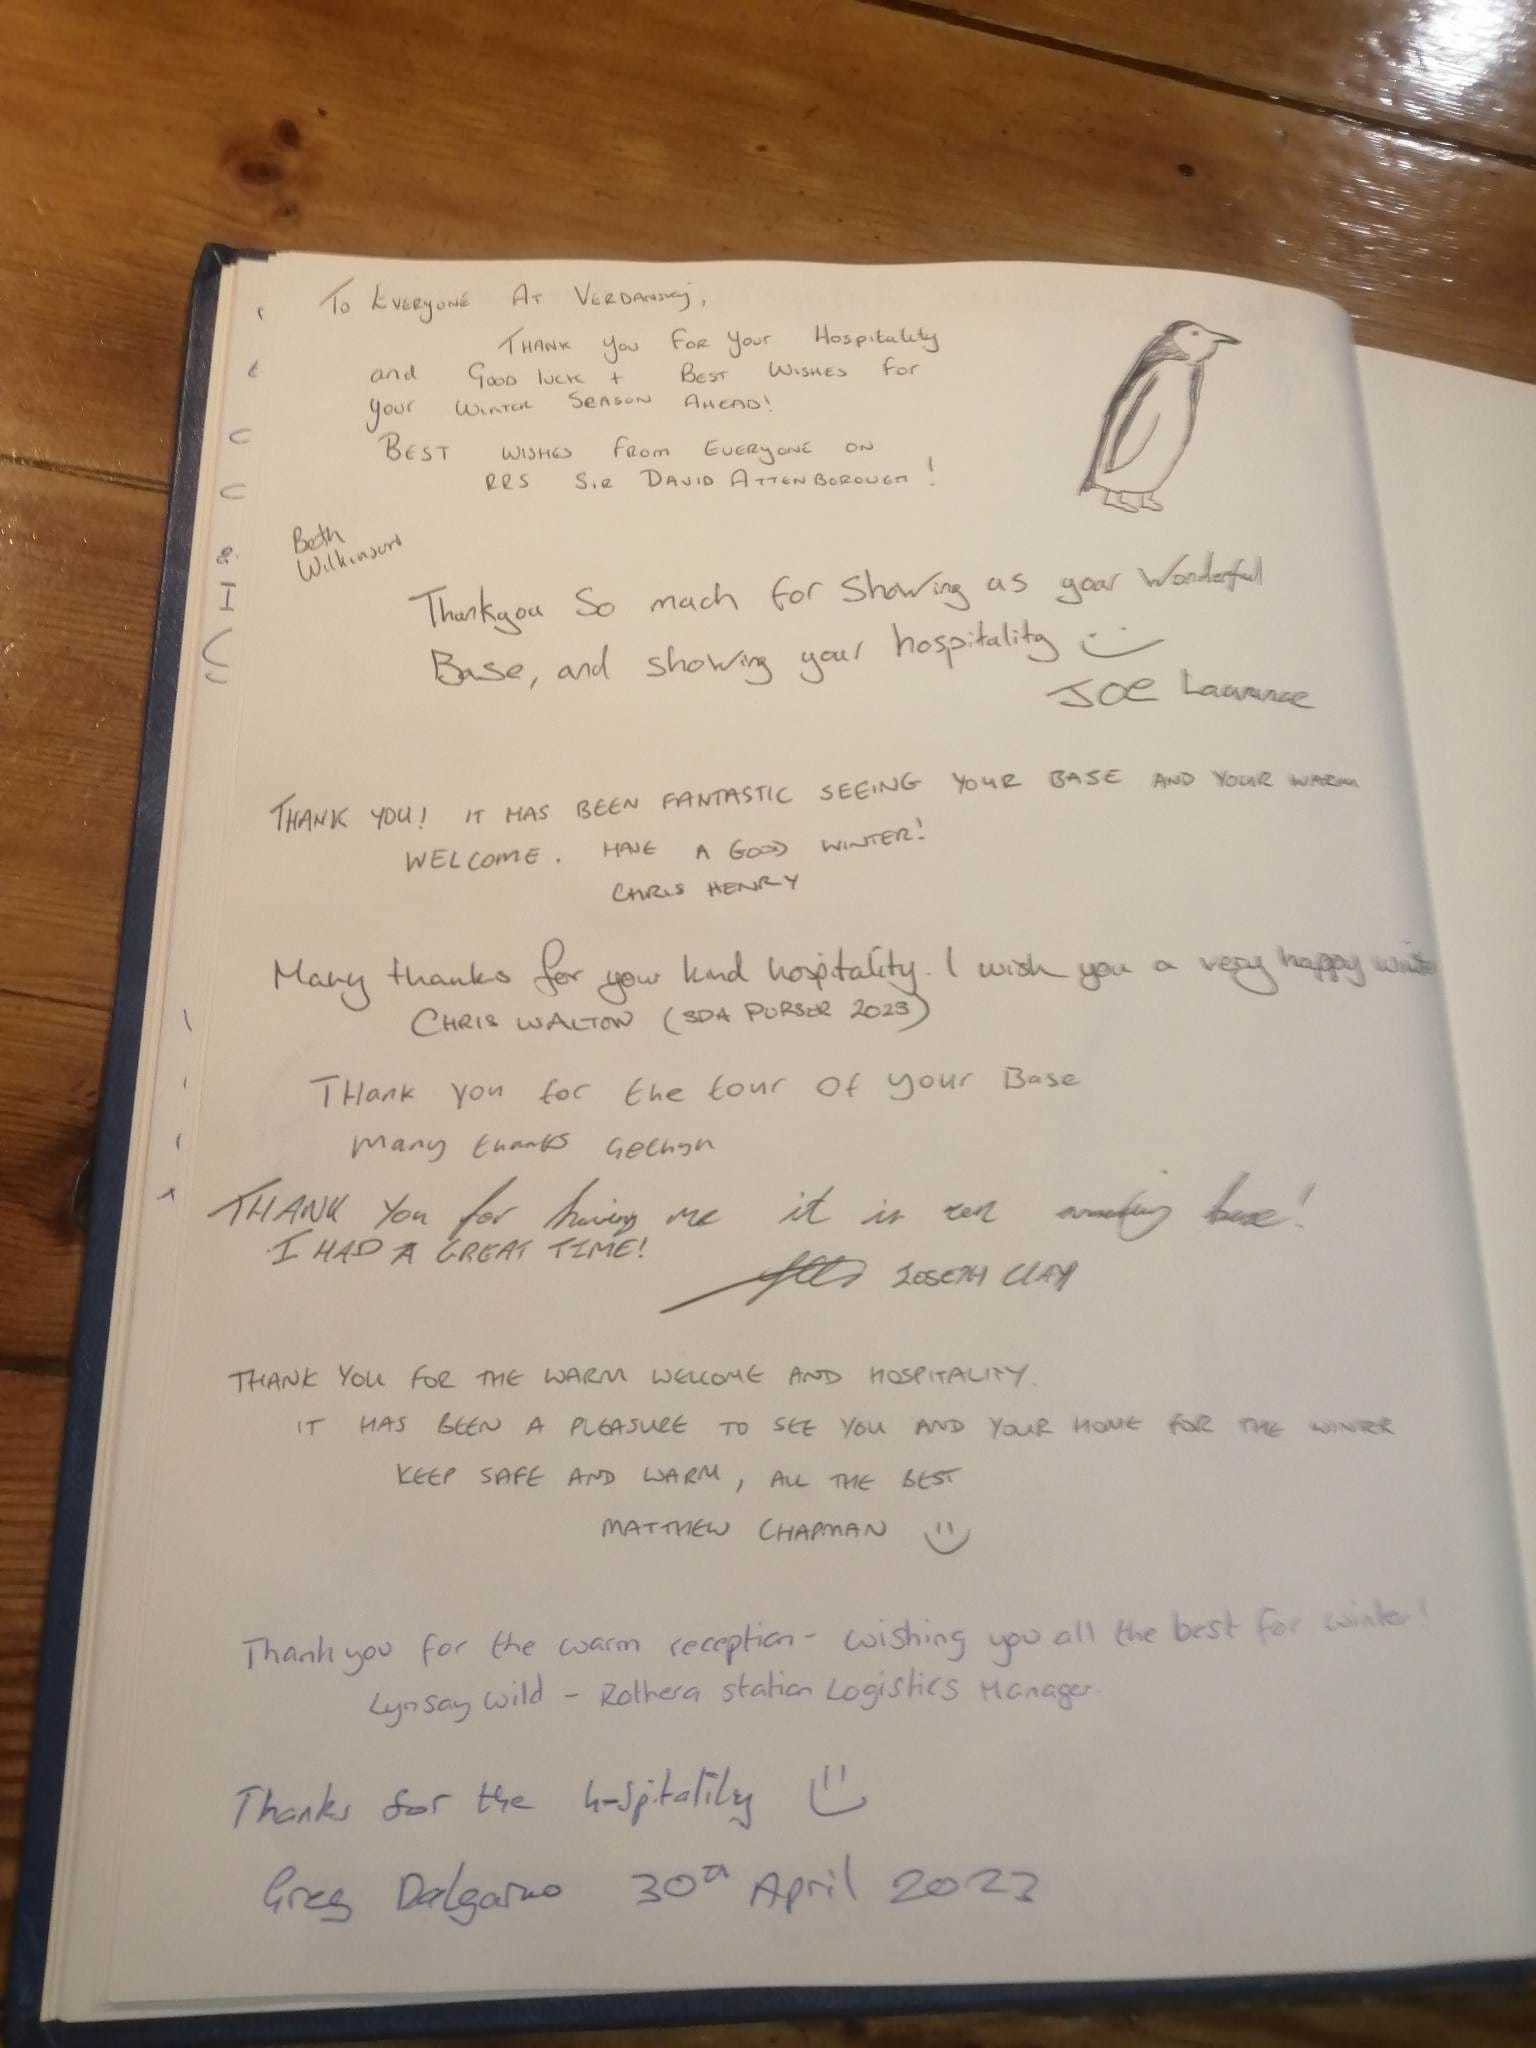 To Everyone At Verdansky,
Thank you For your Hospitality
and Good luck + Best Wishes For
your Winter Season Ahead!
Best wishes From Everyone on
RRS Sir David Attenborough!
Beth
Wilkinson
Thankyou So much for Showing us your Wonderful
Base, and showing your hospitality
JOE Lawrance
THANK YOU! IT HAS BEEN FANTASTIC SEEING YOUR BASE AND YOUR WARM
WELCOME. HAVE A GOOD WINTER!
CHRIS HENRY
Many thanks for your kind hospitality. I wish you a very happy winter
CHRIS WALTON (SDA PURSER 2023)
THank you for the tour of your Base
Many thanks Gethyn
THANK YOU for having me it is an amazing base!
I HAD A GREAT TIME!
JOSEPH CLAY
THANK YOU FOR THE WARM WELCOME AND HOSPITALITY.
IT HAS BEEN A PLEASURE TO SEE YOU AND YOUR HOME FOR THE WINTER
KEEP SAFE AND WARM, ALL THE BEST
MATTHEW CHAPMAN
Thank you for the warm reception - wishing you all the best for winter!
Lynsay Wild - Rothera Station Logistics Manager
Thanks for the hospitality
Greg Dalgarno 30th April 2023